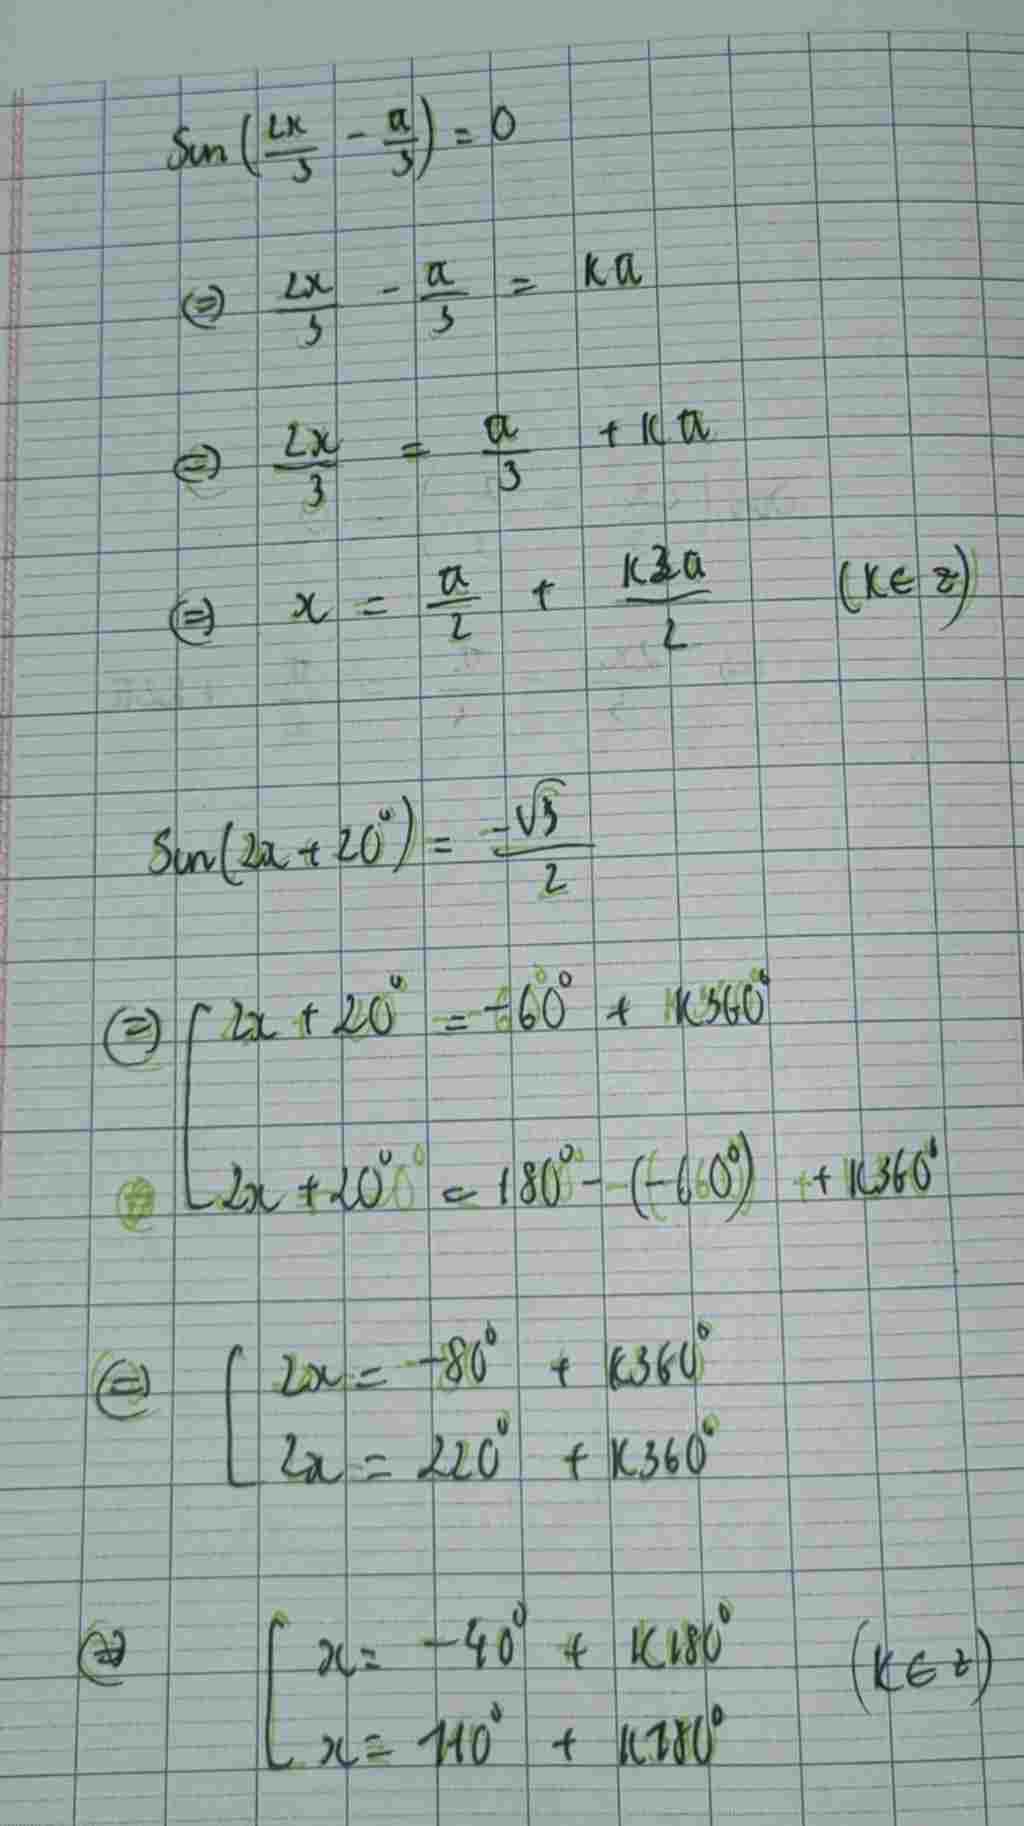 Sin(2x/3 - π/3) = 0
⇔ 2x/3 - π/3 = kπ
⇔ 2x/3 = π/3 + kπ
⇔ x = π/2 + k3π/2 (k ∈ z)
Sin(2x + 20°) = -√3/2
⇔ [ 2x + 20° = -60° + k360°
2x + 20° = 180° - (-60°) + k360°
⇔ [ 2x = -80° + k360°
2x = 220° + k360°
⇔ [ x = -40° + k180° (k ∈ z)
x = 110° + k180°